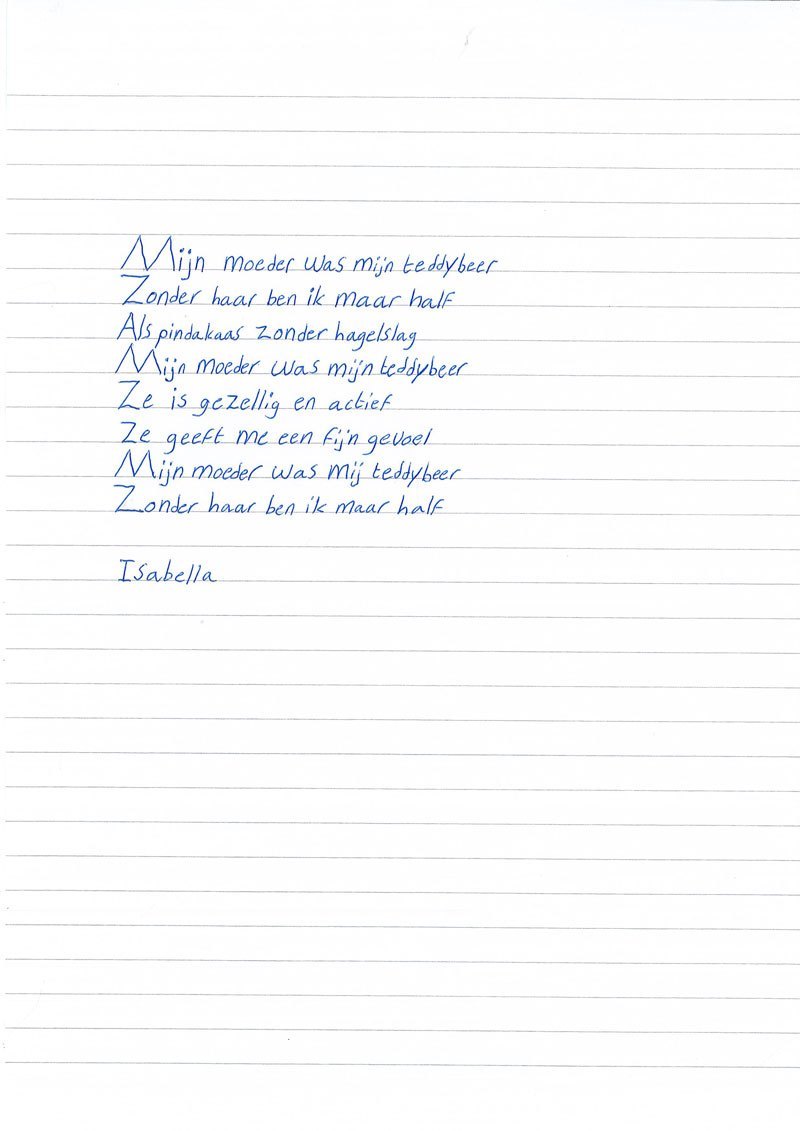 Mijn moeder was mijn teddybeer
Zonder haar ben ik maar half
Als pindakaas zonder hagelslag
Mijn moeder was mijn teddybeer
Ze is gezellig en actief
Ze geeft me een fijn gevoel
Mijn moeder was mij teddybeer
Zonder haar ben ik maar half
Isabella